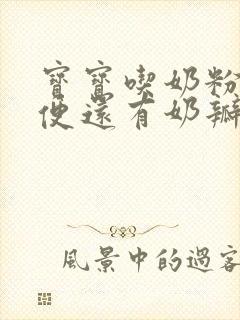 寶寶喫奶粉
便還有奶瓣
風景中的過客